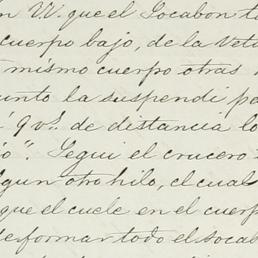 n VV. que el Socabon to
cuerpo bajo, de la Veta
mismo cuerpo otras
unto la suspendi pe
9 vs. de distancia lo
o". Segui el crucero
lgun otro hilo, el cual
que el cuele en el cuerp
eformar todo el socab